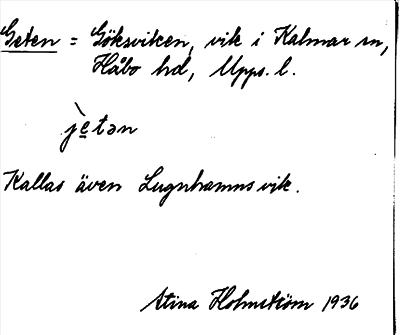 Geten = Göksviken, vik i Kalmar sn,
Håbo hd, Upps. l.
j̀e̠tən
Kallas även Lugnhamnsvik.
Stina Holmström 1936